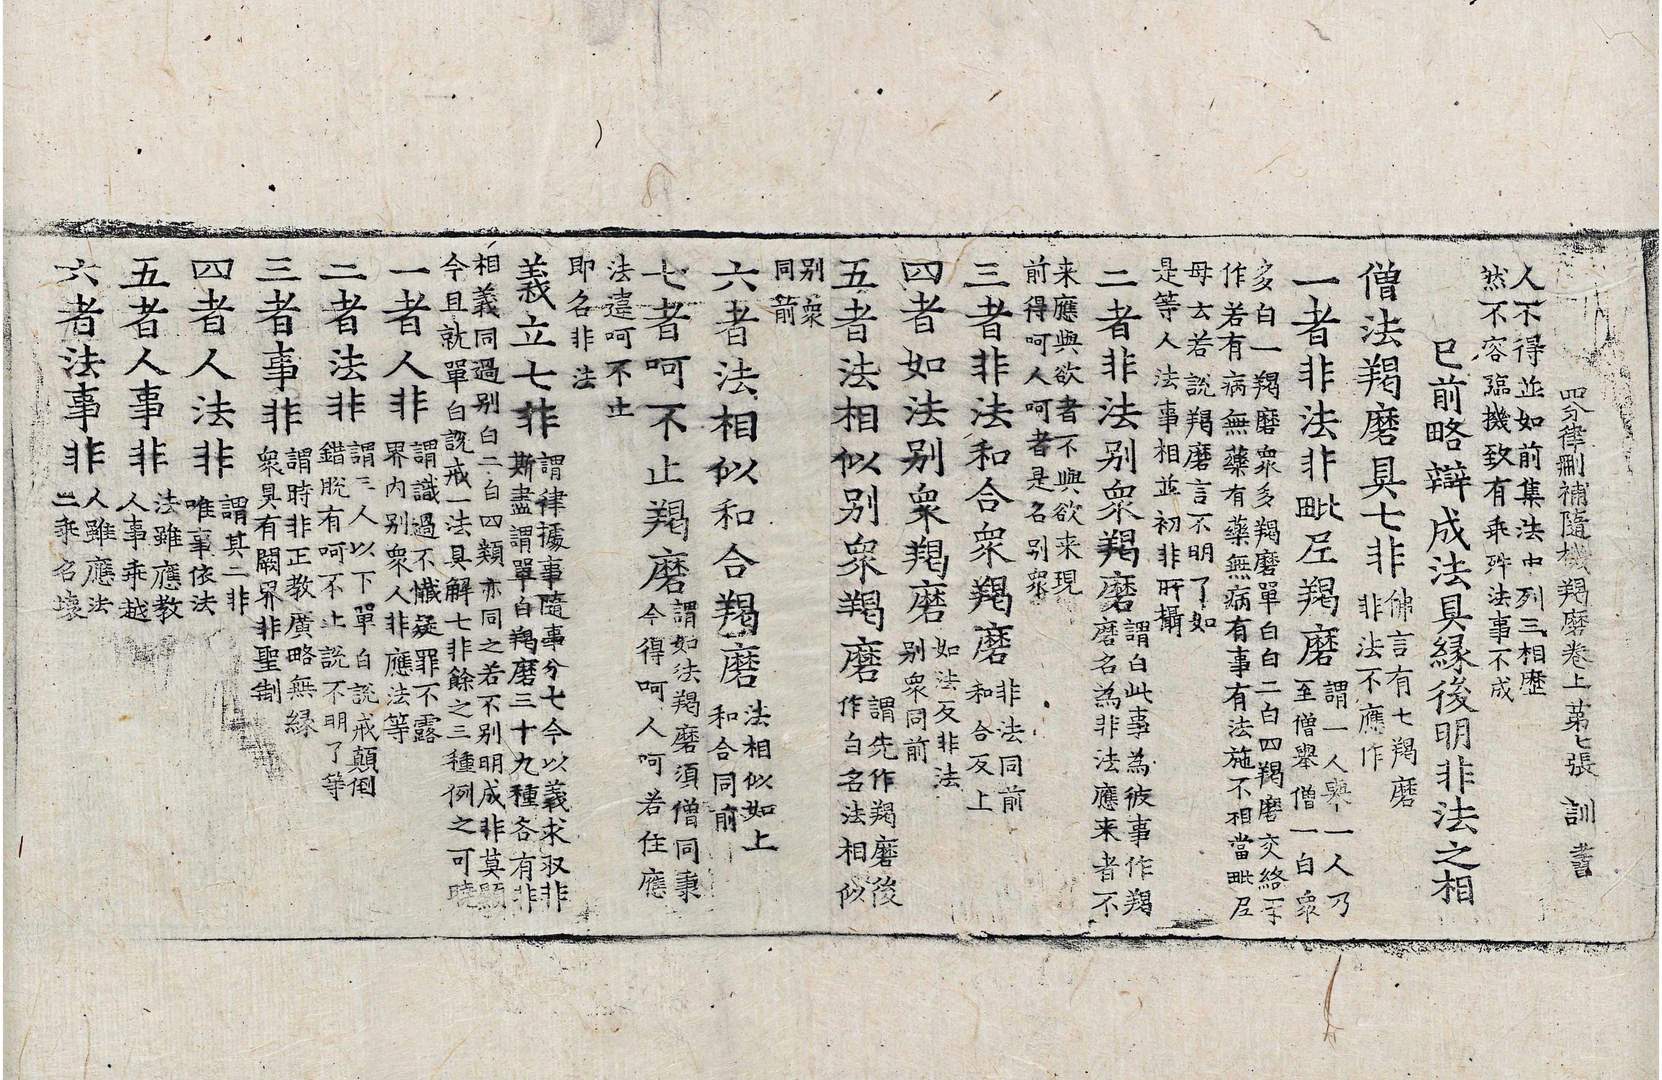 四分律刪補隨機羯磨卷上 第七張 訓 書
人不得並如前集法中列三相歷
然不容臨機致有乖殊法事不成
已前略辯成法具緣後明非法之相
僧法羯磨具七非
佛言有七羯磨
非法不應作
一者非法非毗尼羯磨
謂一人舉一人乃
至僧舉僧一白眾
多白一羯磨眾多羯磨單白白二白四羯磨交絡互
作若有病無藥有藥無病有事有法施不相當毗尼
母云若說羯磨言不明了如
是等人法事相並初非所攝
二者非法别眾羯磨
謂白此事為彼事作羯
磨名為非法應来者不
来應與欲者不與欲来現
前得呵人呵者是名别眾
三者非法和合眾羯磨
非法同前
和合反上
四者如法别眾羯磨
如法反非法
别眾同前
五者法相似别眾羯磨
謂先作羯磨後
作白名法相似
别眾
同前
六者法相似和合羯磨
法相似如上
和合同前
七者呵不止羯磨
謂如法羯磨須僧同秉
今得呵人呵若住應
法違呵不止
即名非法
義立七非
謂律據事隨事分七今以義求収非
斯盡謂單白羯磨三十九種各有非
相義同過别白二白四類亦同之若不别明成非莫顯
今且就單白說戒一法具解七非餘之三種例之可曉
一者人非
謂識過不懺疑罪不露
界内别眾人非應法等
二者法非
謂三人以下單白說戒顛倒
錯脫有呵不止說不明了等
三者事非
謂時非正教廣略無緣
眾具有闕界非聖制
四者人法非
謂其二非
唯事依法
五者人事非
法雖應教
人事乖越
六者法事非
人雖應法
二乖名壞